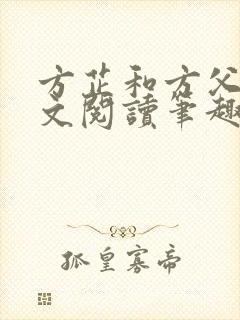 方芷和方父
文閱讀筆趣
孤皇寡帝